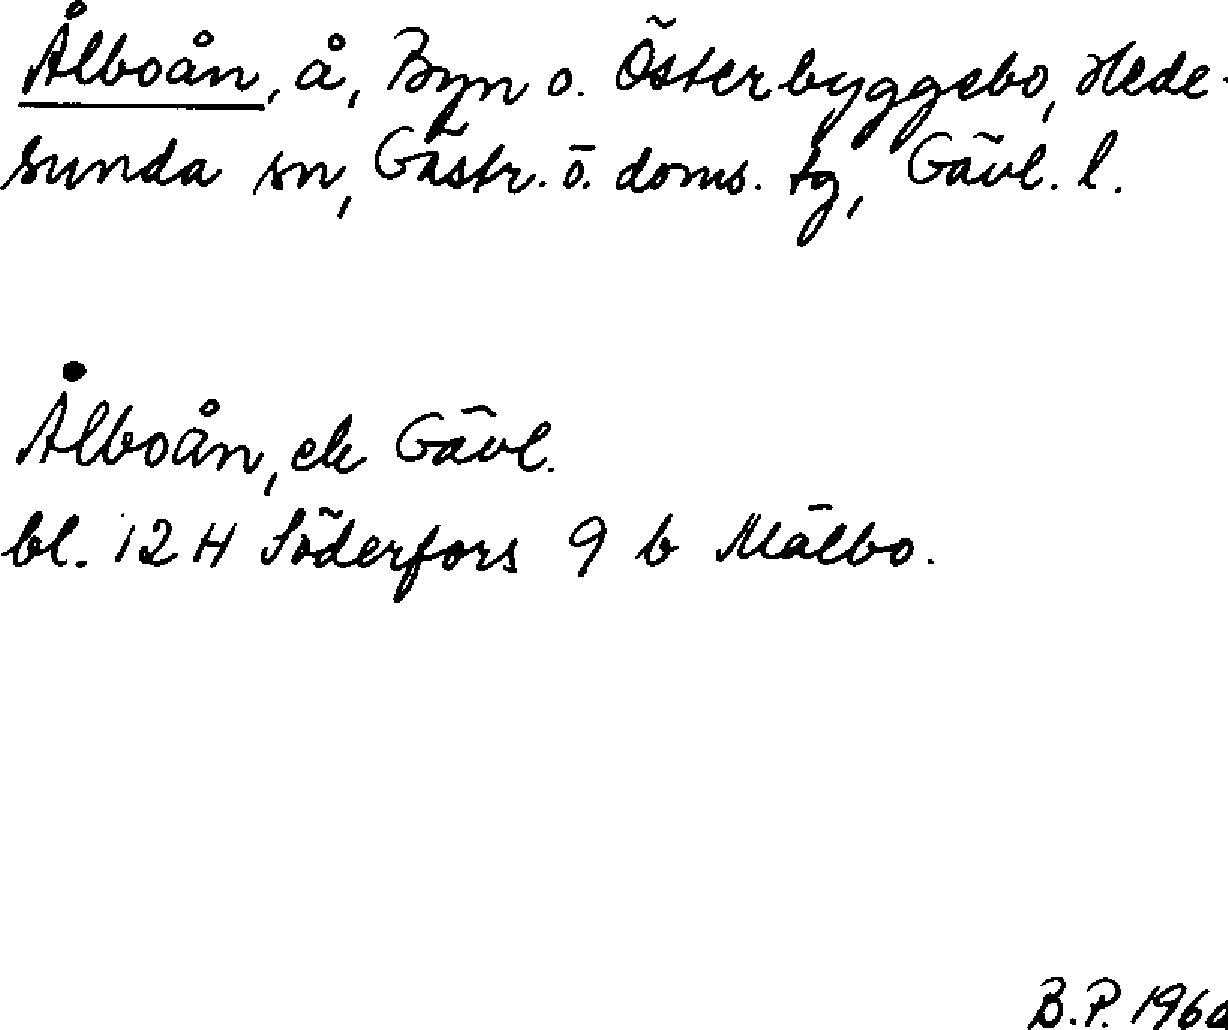 Ålboån, å, Byn o. Österbyggebo, Hede-
sunda sn, Gästr. ö. doms. tg, Gävl. l.
Ålboån, ek Gävl.
bl. 12 H Söderfors 9 b Mälbo.
B.P. 196